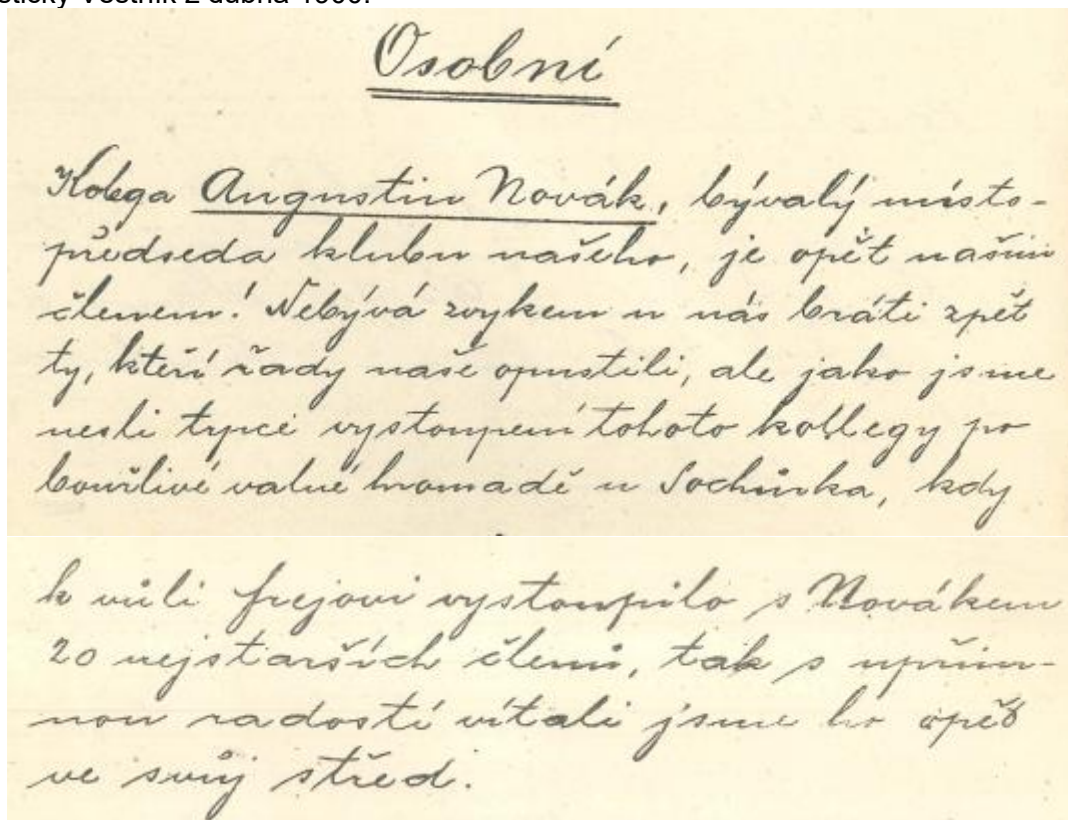 Věstník z dubna
Osobní
Kolega Augustin Novák, bývalý místo-
předseda klubu našeho, je opět naším
členem! Nebývá zvykem u nás bráti zpět
ty, kteří řady naše opustili, ale jako jsme
nesli trpce vystoupení tohoto kollegy po
bouřlivé valné hromadě u Sochůrka, kdy
k vůli frejovi vystoupilo s Novákem
20 nejstarších členů, tak s upřím-
nou radostí vítali jsme ho opět
ve svůj střed.